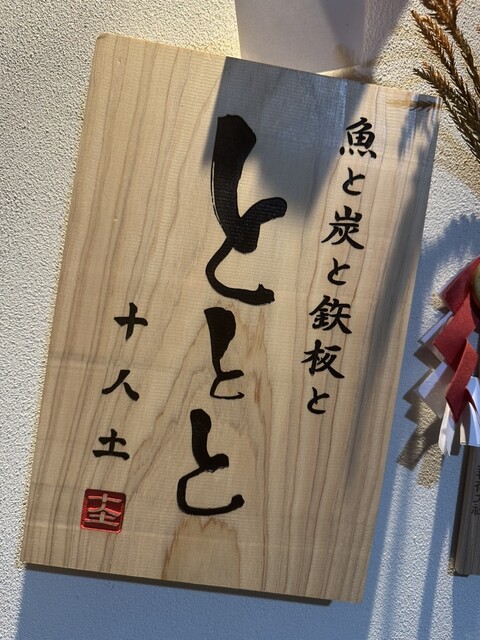 魚と炭と鉄板と
ととと
十人土